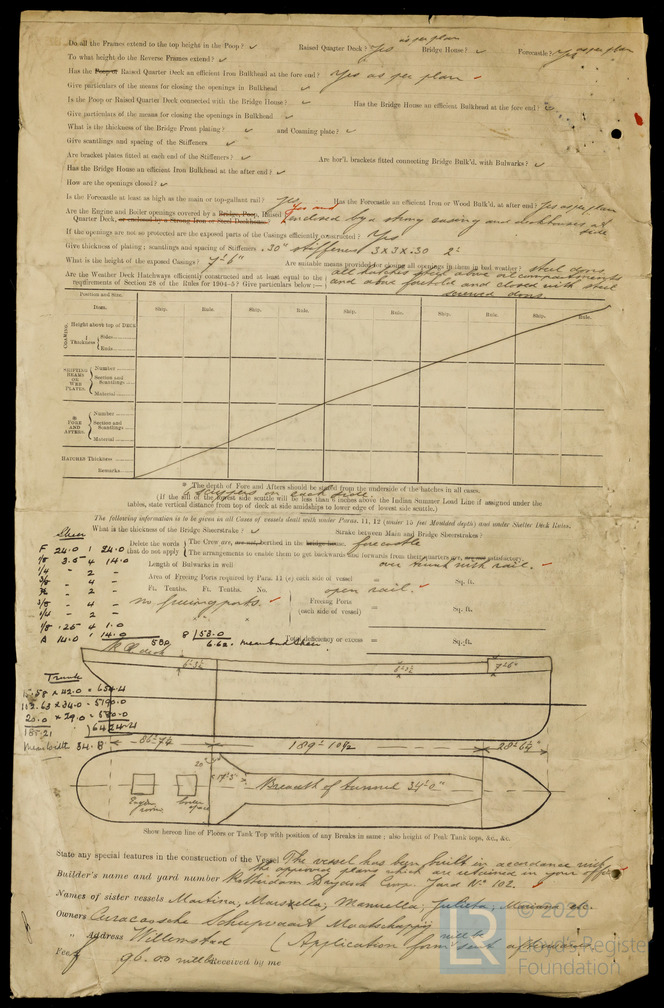 Do all the Frames extend to the top height in the Poop? ✓ Raised Quarter Deck? Yes as per plan Bridge House? ✓ Forecastle? Yes as per plan
To what height do the Reverse Frames extend? ✓
Has the Poop or Raised Quarter Deck an efficient Iron Bulkhead at the fore end? Yes as per plan
Give particulars of the means for closing the openings in Bulkhead ✓
Is the Poop or Raised Quarter Deck connected with the Bridge House? ✓ Has the Bridge House an efficient Bulkhead at the fore end?
Give particulars of the means for closing the openings in Bulkhead ✓
What is the thickness of the Bridge Front plating? ✓ and Coaming plate? ✓
Give scantlings and spacing of the Stiffeners ✓
Are bracket plates fitted at each end of the Stiffeners? ✓ Are hor'l. brackets fitted connecting Bridge Bulk'd, with Bulwarks? ✓
Has the Bridge House an efficient Iron Bulkhead at the after end? ✓
How are the openings closed? ✓
Is the Forecastle at least as high as the main or top-gallant rail? yes Has the Forecastle an efficient Iron or Wood Bulk'd, at after end? Yes as per plan
Are the Engine and Boiler openings covered by a Bridge, Poop, Raised Yes and
Quarter Deck, or enclosed by a Strong Iron or Steel Deckhouse? enclosed by a strong casing and deckhouses at side
If the openings are not so protected are the exposed parts of the Casings efficiently constructed? Yes
Give thickness of plating; scantlings and spacing of Stiffeners .30" stiffeners 3 x 3 x .30
What is the height of the exposed Casings? 7'-6" Are suitable means provided for closing all openings in them in bad weather? steel doors
Are the Weather Deck Hatchways efficiently constructed and at least equal to the all hatches above oil compartments
requirements of Section 28 of the Rules for 1904-5? Give particulars below:— and above forehold and closed with steel
screwed doors.
Position and Size.
Item. Ship. Rule. Ship. Rule. Ship. Rule. Ship. Rule. Ship. Rule.
COAMING.
Height above top of DECK
Thickness Sides
Ends
SHIFTING BEAMS OR WEB PLATES.
Number
Section and Scantlings
Material
FORE AND AFTERS.
Number
Section and Scantlings
Material
HATCHES Thickness
Remarks
* The depth of Fore and Afters should be stated from the underside of the hatches in all cases.
scuppers on each side.
(If the sill of the lowest side scuttle will be less than 6 inches above the Indian Summer Load Line if assigned under the
tables, state vertical distance from top of deck at side amidships to lower edge of lowest side scuttle.)
The following information is to be given in all Cases of vessels dealt with under Paras. 11, 12 (under 15 feet Moulded depth) and under Shelter Deck Rules.
What is the thickness of the Bridge Sheerstrake? ✓ Strake between Main and Bridge Sheerstrakes?
Delete the words that do not apply The Crew are, are not, berthed in the bridge house forecastle
The arrangements to enable them to get backwards and forwards from their quarters are, are not satisfactory.
Length of Bulwarks in well over trunk with rail.
Area of Freeing Ports required by Para. 11 (e) each side of vessel = Sq. ft.
Ft. Tenths. Ft. Tenths. No. open rail.
no freeing ports. Freeing Ports (each side of vessel) = Sq. ft.
Total deficiency or excess = Sq. ft.
Sheer
F 24.0 1 24.0
1/8 3.5 4 14.0
1/4 - 2 -
3/8 - 4 -
1/2 - 2 -
5/8 - 4 -
3/4 - 2 -
7/8 .25 4 1.0
A 14.0 1 14.0
8 | 53.0
6.62 mean sheer
7'-6"
Trunk
15.58 x 42.0 = 654.4
20.0 x 29.0 = 580.0
185.21 ) 6424.4
34.8
86'-7½ 189'-10½ 28'-6½"
Engine room
Boiler
Breadth of tunnel 34'-0"
Show hereon line of Floors or Tank Top with position of any Breaks in same; also height of Peak Tank tops, &c., &c.
State any special features in the construction of the Vessel The vessel has been built in accordance with
the approved plans which are retained in your office
Builder's name and yard number Rotterdam Drydock Corp. Yard No 102.
Names of sister vessels Martina, Marsella, Manuella, Julieta, Mariana etc.
Owners Curacaosche Scheepvaart Maatschappij
" Address Willemstad (Application form will be sent afterwards
Fee £ 96.00 will be Received by me
LR © 2020
Lloyd's Register
Foundation